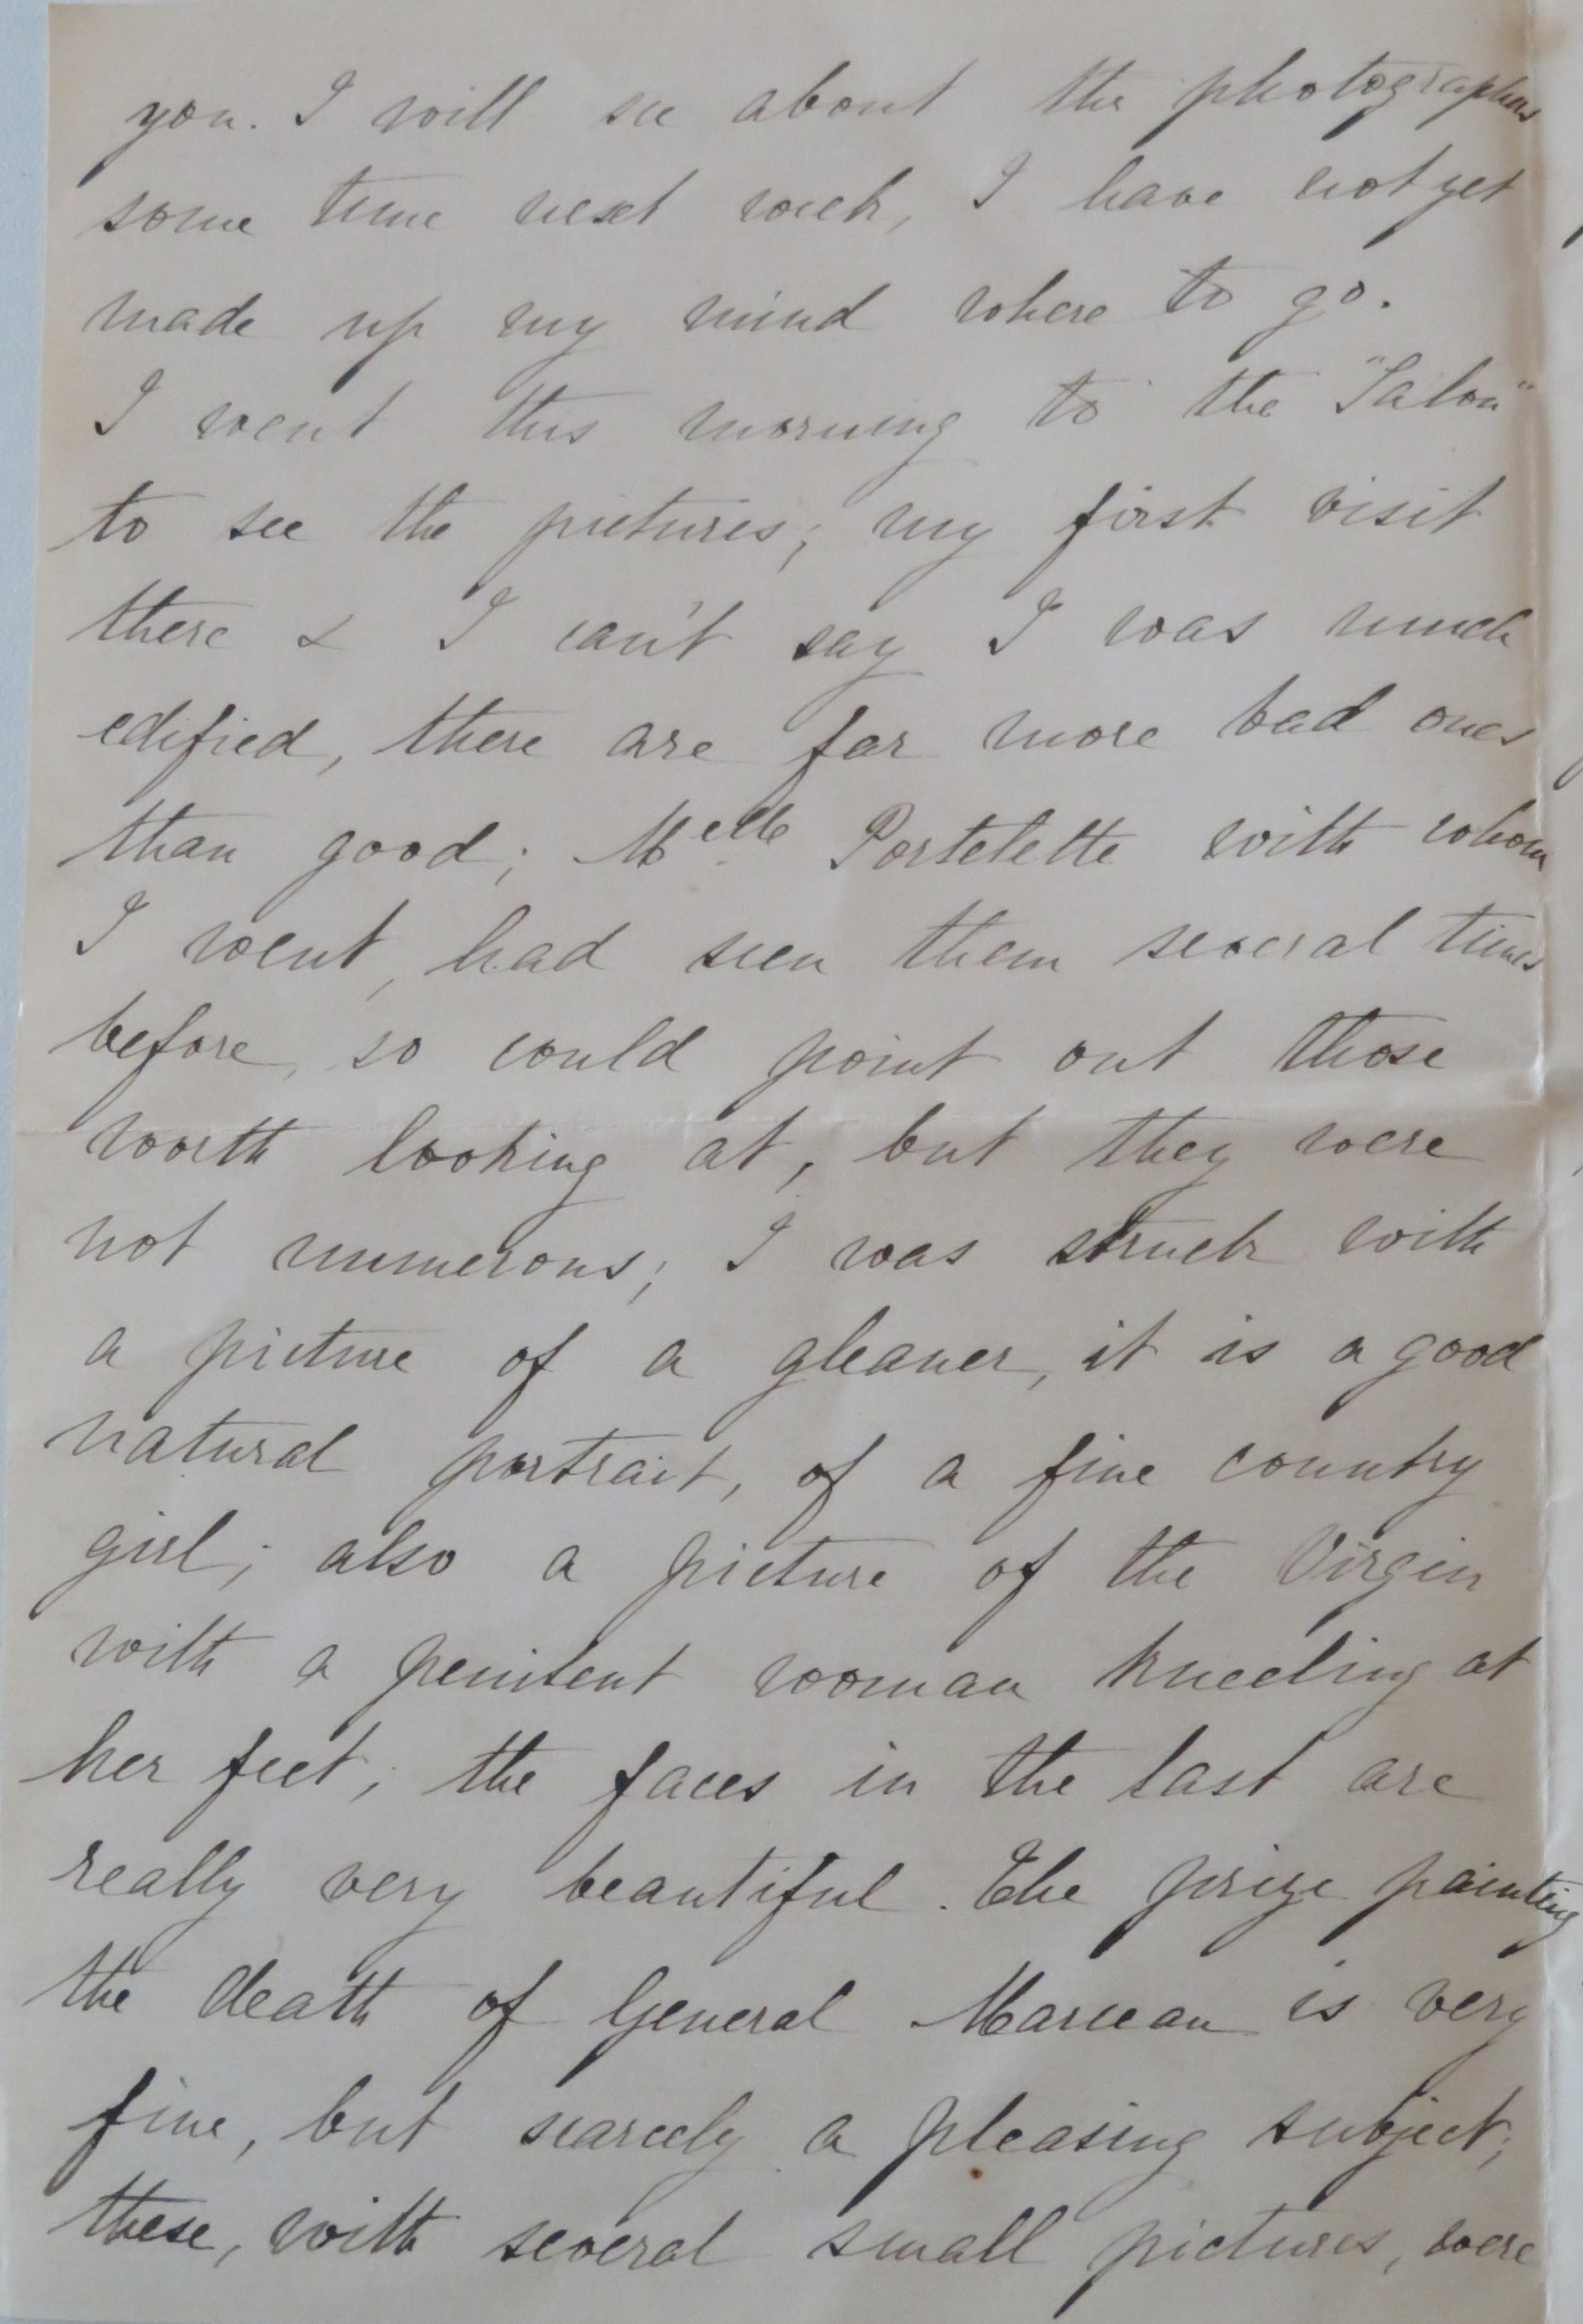 you. I will see about the photographs
some time next week, I have not yet
made up my mind where to go.
I went this morning to the "Salon"
to see the pictures; my first visit
there & I can't say I was much
edified, there are far more bad ones
than good; Melle Portelette with whom
I went, had seen them several times
before, so could point out those
worth looking at, but they were
not numerous; I was struck with
a picture of a gleaner, it is a good
natural portrait, of a fine country
girl; also a picture of the Virgin
with a penitent woman kneeling at
her feet; the faces in the last are
really very beautiful. The prize painting
the death of General Marceau is very
fine, but scarcely a pleasing subject;
these, with several small pictures, were